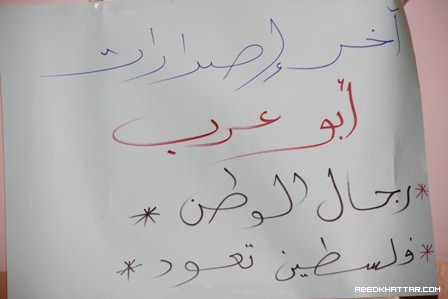 آخر إصدارات
أبو عرب
* رجال الوطن *
* فلسطين تعود *
ABEDKHATTAR.COM